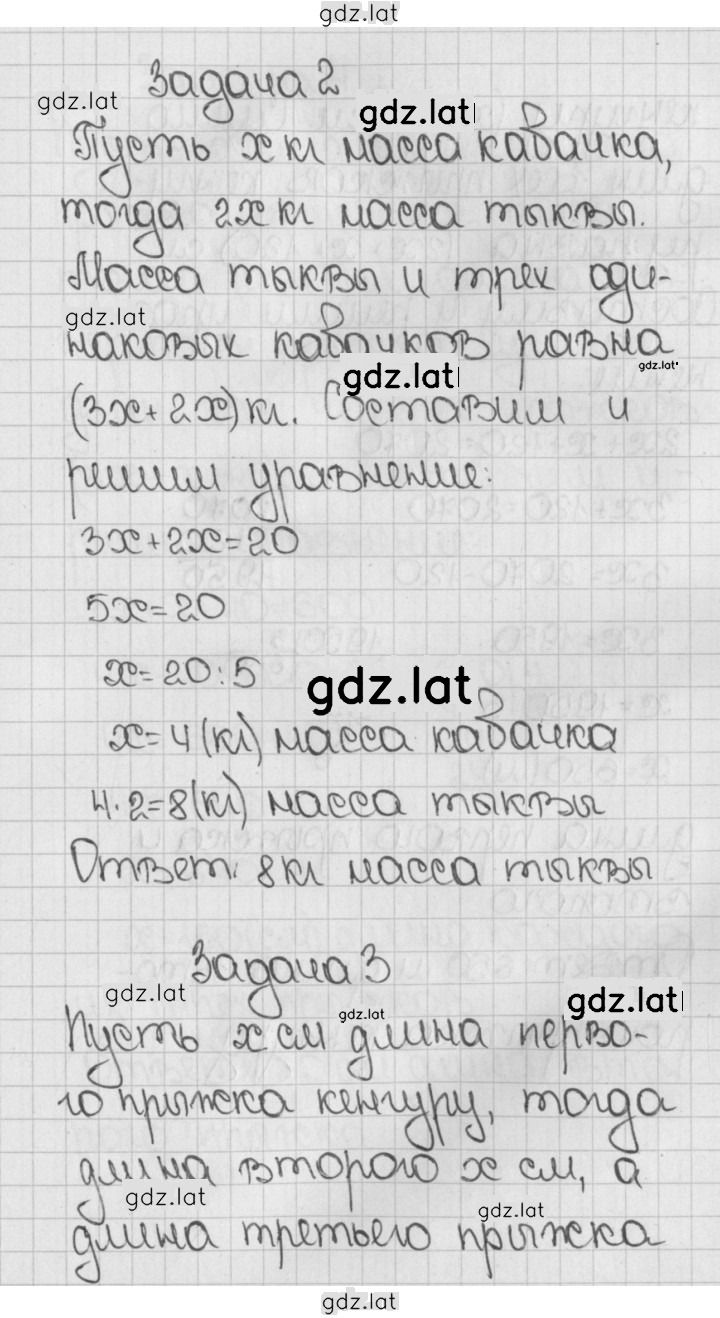 gdz.lat
Задача 2
gdz.lat
gdz.lat
Пусть х кг масса кабачка,
тогда 2х кг масса тыквы.
Масса тыквы и трех оди-
gdz.lat
наковых кабачков равна
gdz.lat
gdz.lat
(3х+2х)кг. Составим и
решим уравнение:
3х+2х=20
5х=20
х=20:5
gdz.lat
х=4(кг) масса кабачка
4·2=8(кг) масса тыквы
Ответ: 8кг масса тыквы
Задача 3
gdz.lat
gdz.lat
gdz.lat
Пусть х см длина перво-
го прыжка кенгуру, тогда
длина второго х см, а
gdz.lat
gdz.lat
длина третьего прыжка
gdz.lat